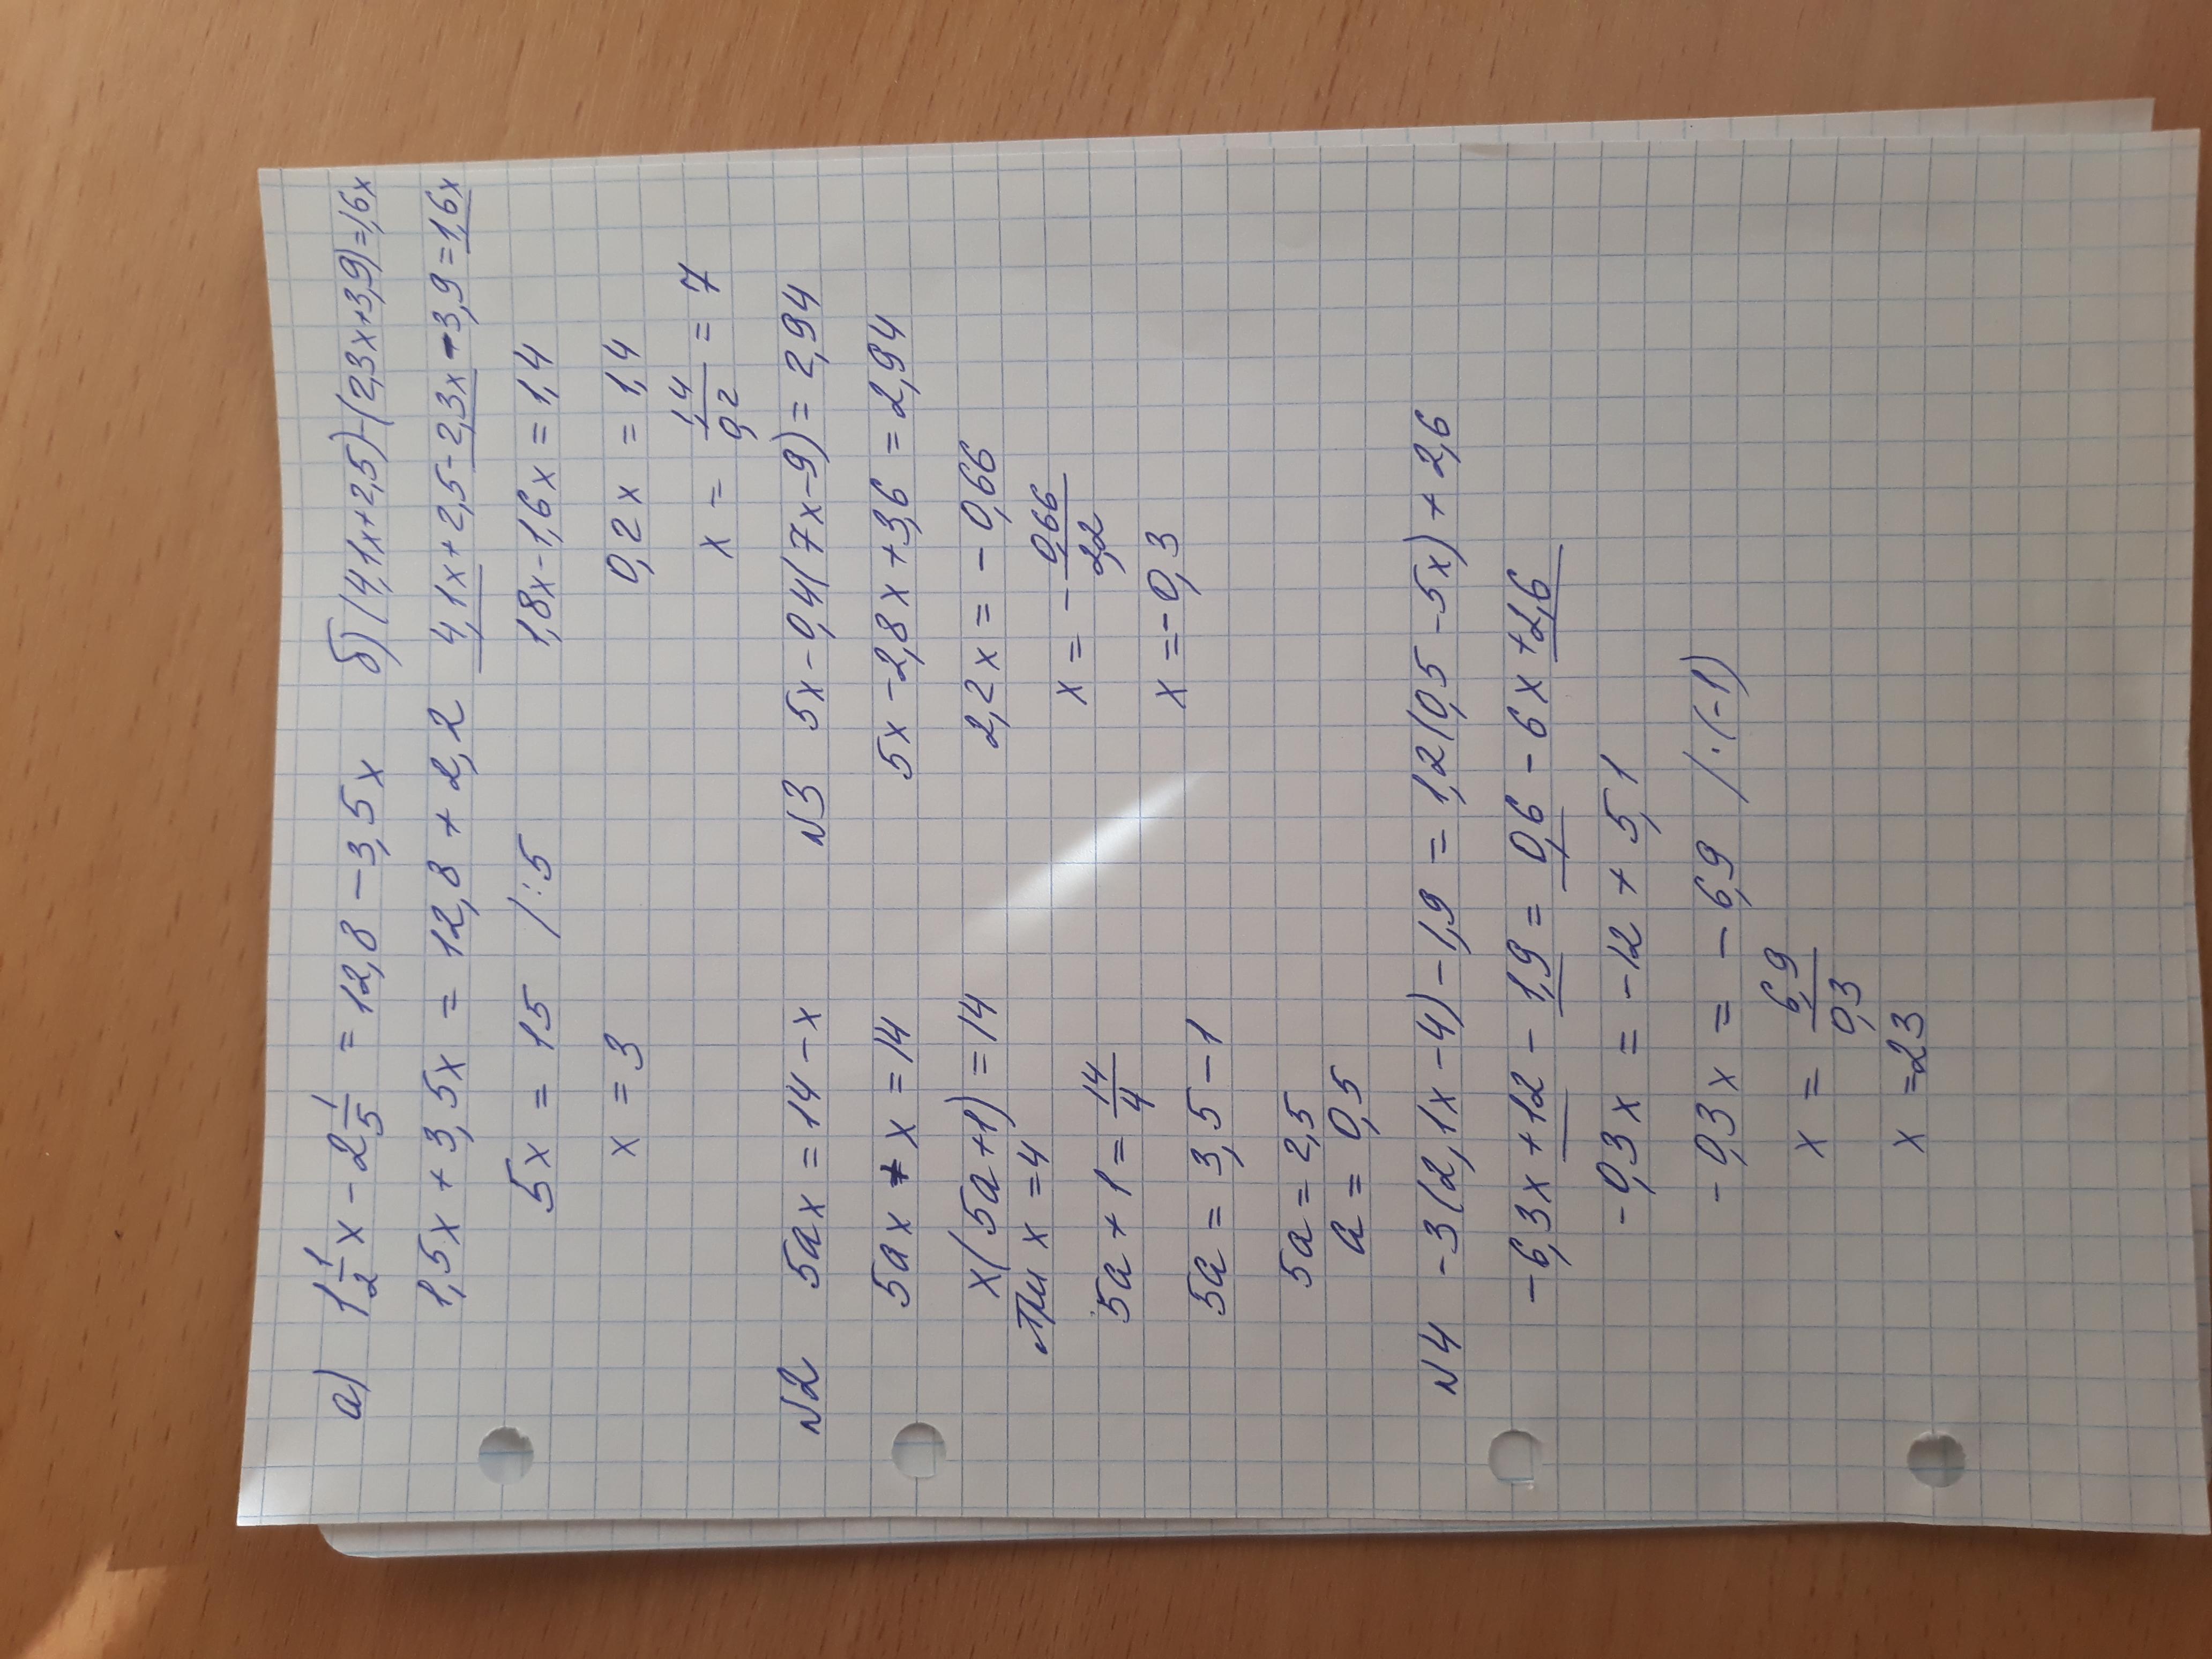 а) 1 1/2 x - 2 1/5 = 12,8 - 3,5x
1,5x + 3,5x = 12,8 + 2,2
5x = 15 /:5
x = 3
б) (4,1x+2,5)-(2,3x+3,9)=1,6x
4,1x+2,5-2,3x-3,9=1,6x
1,8x-1,6x=1,4
0,2x=1,4
x = 1,4/0,2 = 7
N2 5ax = 14 - x
5ax + x = 14
x(5a+1) = 14
при x = 4
5a + 1 = 14/4
5a = 3,5 - 1
5a = 2,5
a = 0,5
N3 5x - 0,4(7x-9) = 2,94
5x - 2,8x + 3,6 = 2,94
2,2x = - 0,66
x = - 0,66/2,2
x = - 0,3
N4 -3(2,1x-4)-1,9 = 1,2(0,5-5x)+2,6
-6,3x+12-1,9=0,6-6x+2,6
-0,3x = -12 + 5,1
-0,3x = -6,9 /·(-1)
x = 6,9/0,3
x = 23